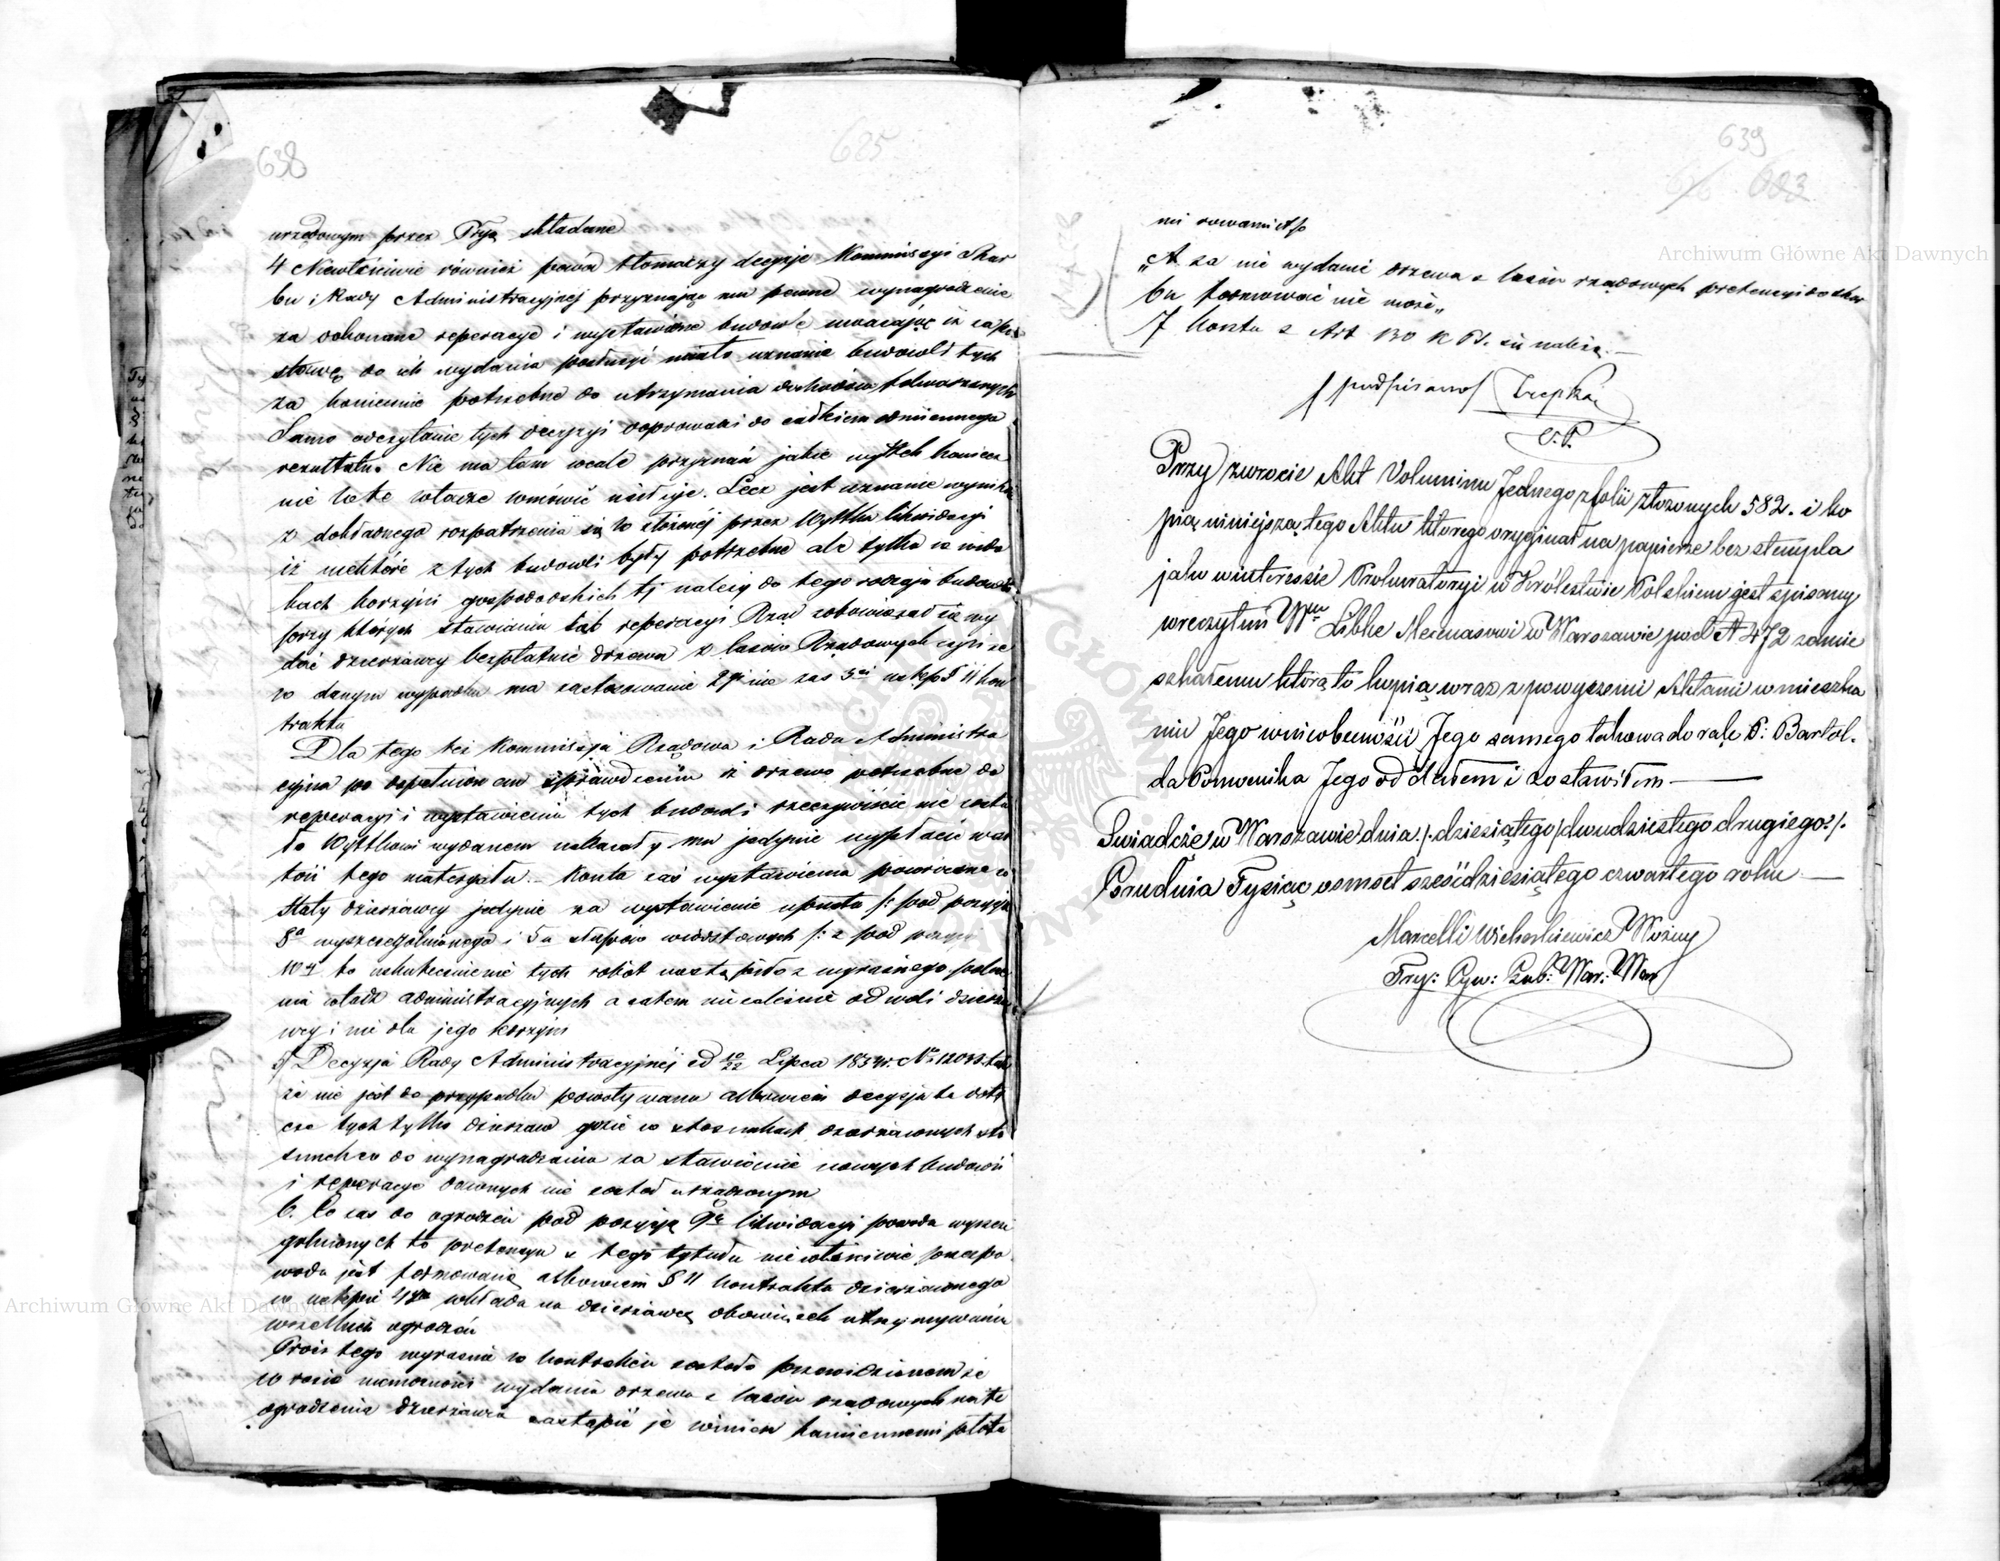 638
625
urzędowym przez Tryę składane
4 Niewłaściwie również powód tłomaczy decyzje Kommissyi Skar
bu i Rady Administracyjnej przyznające mu pewne wynagrodzenie
za dokonane reperacye i wystawione budowle uważając iż za pod
stawę do ich wydania posłużyć miało uznanie budowli tych
za koniecznie potrzebne do utrzymania dochodów folwarcznych
Samo odczytanie tych decyzyi doprowadzi do całkiem odmiennego
rezultatu. Nie ma tam wcale przyznań jakie w tych koniecz
nie te władze wmówić usiłuje. Lecz jest uznanie wynikłe
z dokładnego rozpatrzenia się w złożonéj przez Wyttka likwidacyi
iż niektóre z tych budowli były potrzebne ale tylko w wido
kach korzyści gospodarskich tj należą do tego rodzaju budowli
przy których stawianiu lub reperacyi Rząd zobowiązał się wy
dać dzierżawcy bezpłatnie drzewa z lasów Rządowych czyli że
w danym wypadku ma zastosowanie 2gi nie zaś 3ci ustęp § 11 kon
traktu
Dla tego też Kommissyja Rządowa i Rada Administra
cyjna po dopełnionem sprawdzeniu iż drzewo potrzebne do
reperacyi i wystawienia tych budowli rzeczywiście nie zosta
ło Wyttkowi wydanem nakazały mu jedynie wypłacić war
tość tego materyału. Koszta zaś wystawienia powrócone zo
stały dzierżawcy jedynie za wystawienie upustu /: pod pozycją
8ą wyszczególnionego i 5u słupów wiorstowych /: z pod pozycyi
10ej bo uskutecznienie tych robót nastąpiło z wyraźnego polece
nia władz administracyjnych a zatem niezależnie od woli dzierża
wcy i nie dla jego korzyści
5/ Decyzja Rady Administracyjnéj z d 10/22 Lipca 1854r. Nr 12033 tak
że nie jest do przypadku powoływana albowiem decyzja ta doty
cze tych tylko dzierżaw gdzie w stosunkach dzierżawnych sto
sunek co do wynagradzania za stawianie nowych budowli
i reperacye dawnych nie został urządzonym
6. Co zaś do ogrodzeń pod pozycją 9ą likwidacyi powoda wyszcze
gólnionych to pretensya z tego tytułu niewłaściwie przez po
woda jest formowaną albowiem § 11 kontraktu dzierżawnego
w ustępie 4ym wkłada na dzierżawcę obowiązek utrzymywania
wszelkich ogrodzeń
Prócz tego wyraźnie w kontrakcie zostało przewidzianem że
w razie niemożności wydania drzewa z lasów rządowych na te
ogrodzenia dzierżawca zastąpić je winien kamiennemi płota
639
683
mi rowami itp
„A za nie wydanie drzewa z lasów rządowych pretensyi do skar
bu formować nie może„
7 Koszta z Art 130 K P. się należą.—
/ podpisano / Trepka
O. P.
Przy zwrocie Akt Voluminu Jednego z folii złożonych 582. i ko
pią niniejszą tego Aktu którego oryginał na papierze bez stempla
jako w interessie Prokuratoryi w Królestwie Polskiem jest spisany
wręczyłem Wmu Libke Mecenasowi w Warszawie pod N 472 zamie
szkałemu którą to kopią wraz z powyższemi Aktami w mieszka
niu Jego w nieobecności Jego samego takowa do rąk P: Bartol-
da Pomocnika Jego oddałem i zostawiłem —
Świadczę w Warszawie dnia /: dziesiątego / dwudziestego drugiego :/.
Grudnia Tysiąc osmset sześćdziesiątego czwartego roku —
Marcelli Wichorkiewicz Woźny
Try: Cyw: Gub: War: War
Archiwum Główne Akt Dawnych
Archiwum Główne Akt Dawnych